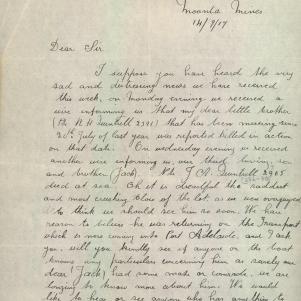 Moonta Mines
14/9/17
Dear Sir.
I suppose you have heard the very
sad and distressing news we have received
this week, on Monday evening we received a
wire informing us that my dear little brother
(Pte R H Trembath 2591) that has been missing since
July of last year was reported killed in action
on that date. On Wednesday evening we received
another wire informing us our third loving son
and brother (Jack). 2905
died at sea. Oh it is dreadful the saddest
and most crushing blow of the lot, as we were overjoyed
to think we should see him so soon. We have
reason to believe he was returning on the Transport
which is now coming into Port Adelaide, and I ask
you will you kindly see if anyone on the boat
knows any particulars concerning him as surely our
dear (Jack) had some mate or comrade, we are
longing to know more about him. We would
like to hear or see anyone who has anything to